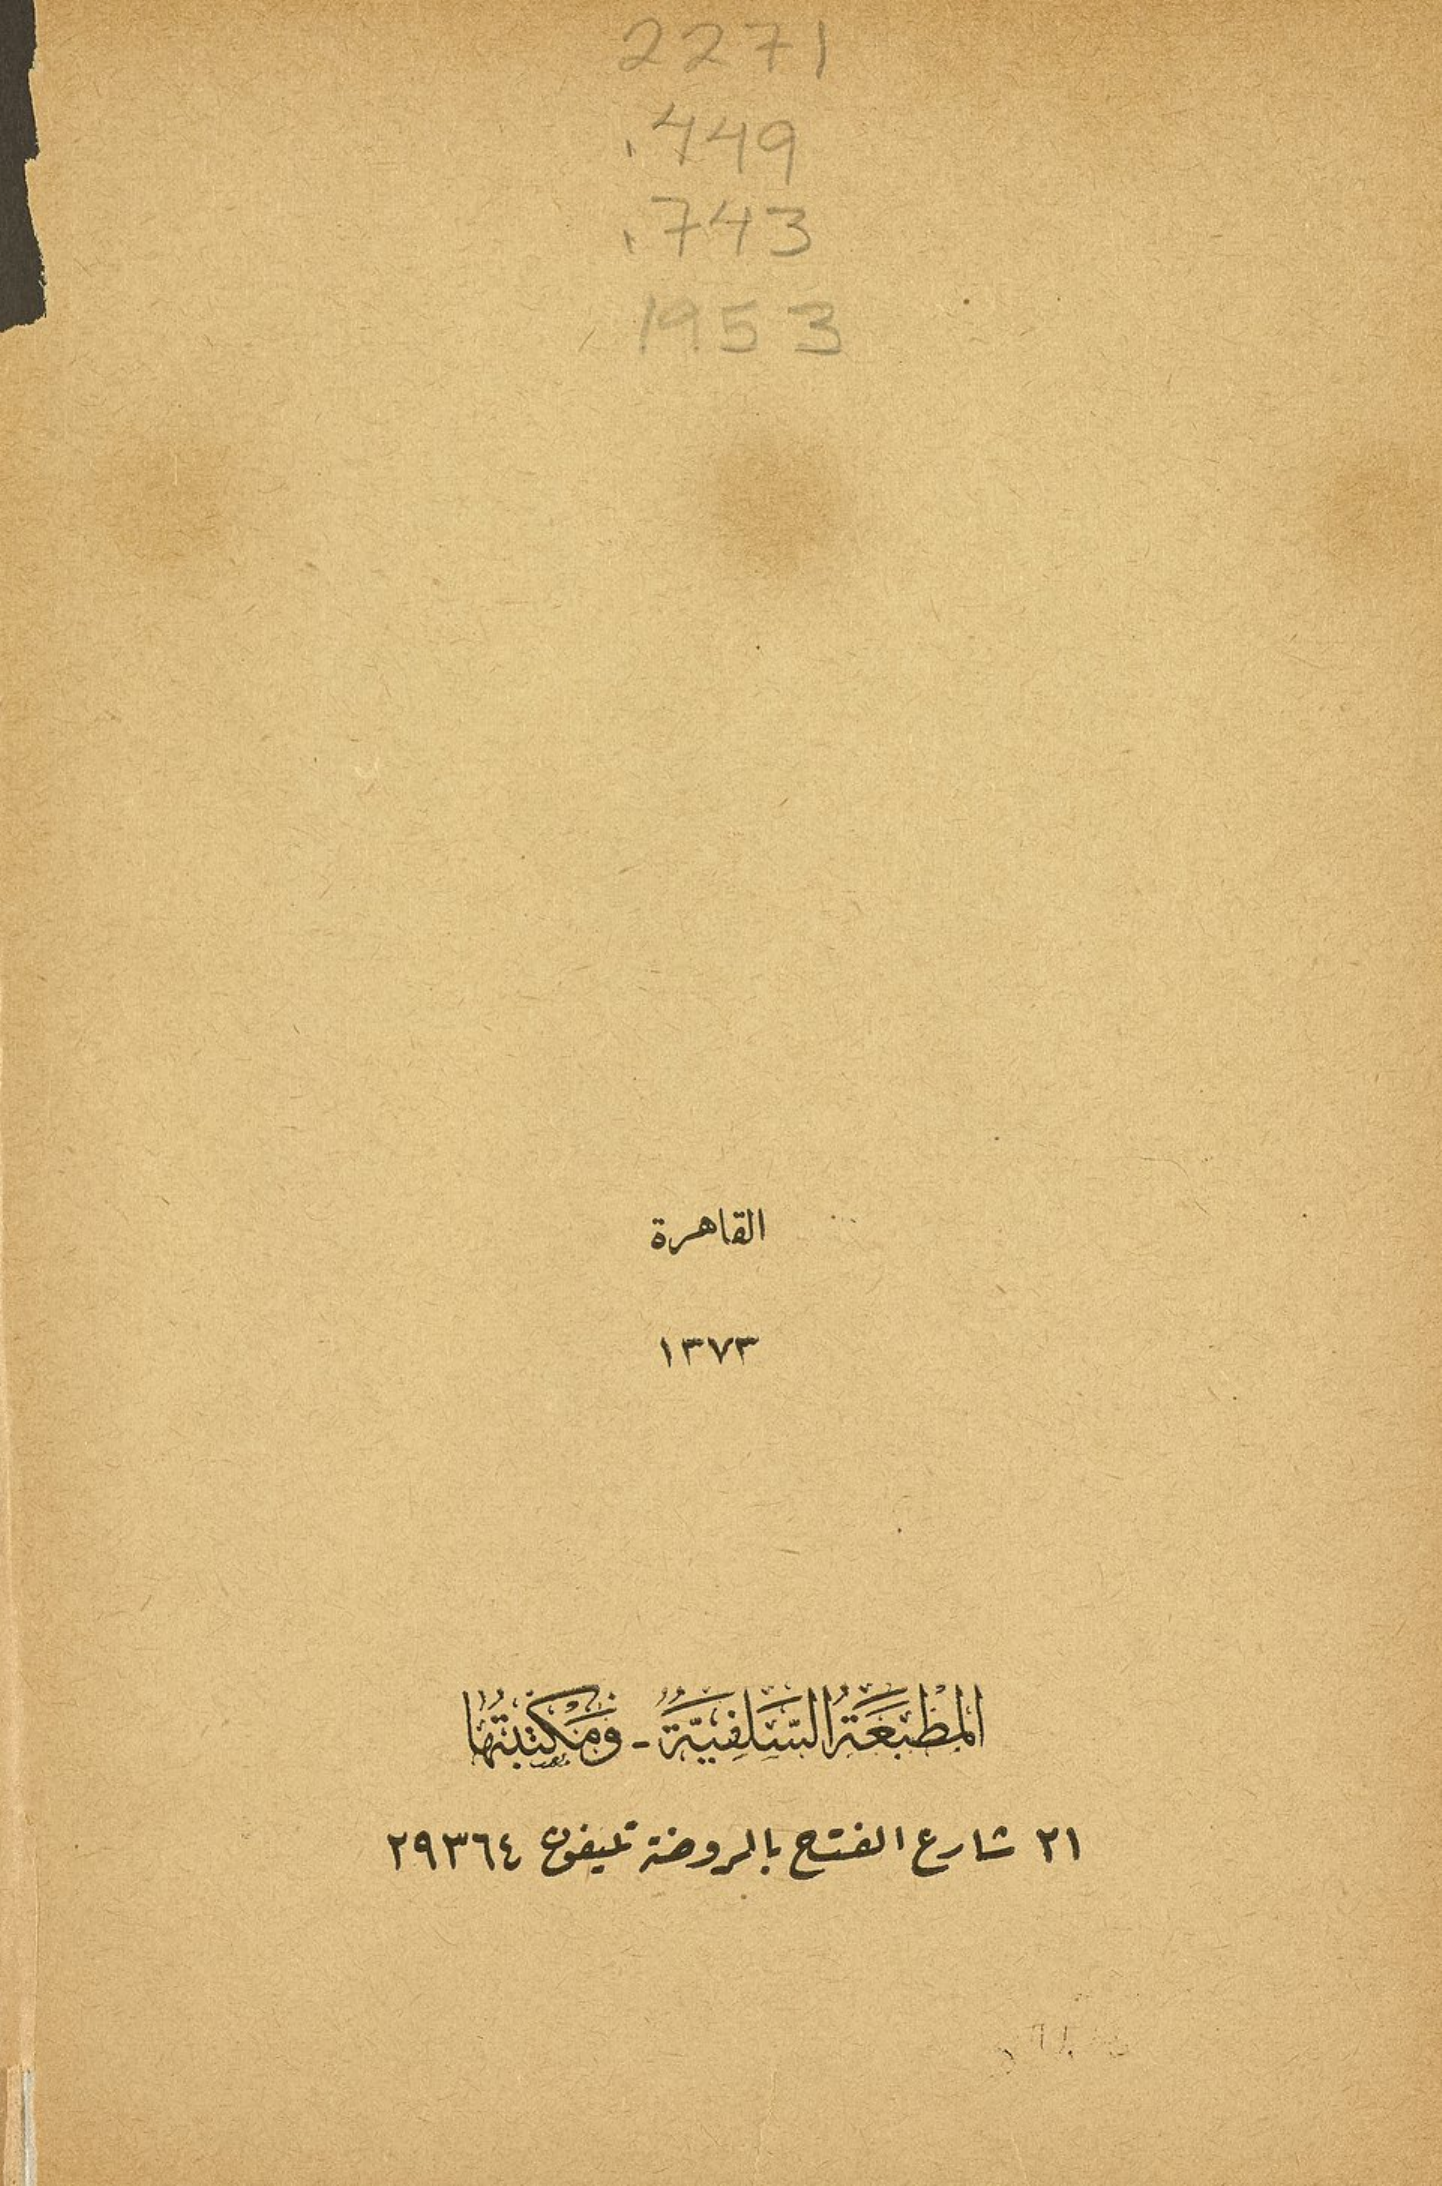 2271
.449
.743
1953
القاهرة
١٣٧٣
المَطْبَعَةُ السَّلَفِيَّةُ - وَمَكْتَبَتُهَا
٢١ شارع الفتح بالروضة تليفون ٢٩٣٦٤